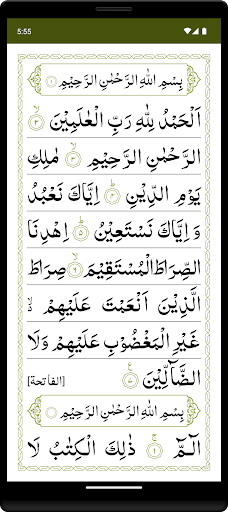 5:55
بِسْمِ اللّٰهِ الرَّحْمٰنِ الرَّحِيْمِ ۝١
اَلْحَمْدُ لِلّٰهِ رَبِّ الْعٰلَمِيْنَ ۝٢
الرَّحْمٰنِ الرَّحِيْمِ ۝٣ مٰلِكِ
يَوْمِ الدِّيْنِ ۝٤ اِيَّاكَ نَعْبُدُ
وَ اِيَّاكَ نَسْتَعِيْنُ ۝٥ اِهْدِنَا
الصِّرَاطَ الْمُسْتَقِيْمَ ۝٦ صِرَاطَ
الَّذِيْنَ اَنْعَمْتَ عَلَيْهِمْ
غَيْرِ الْمَغْضُوْبِ عَلَيْهِمْ وَلَا
الضَّآلِّيْنَ ۝٧ [الفاتحة]
بِسْمِ اللّٰهِ الرَّحْمٰنِ الرَّحِيْمِ
الٓمّٓ ۝١ ذٰلِكَ الْكِتٰبُ لَا